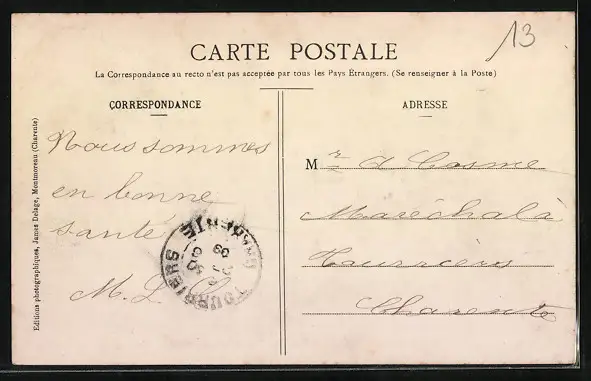 13
CARTE POSTALE
La Correspondance au recto n'est pas acceptée par tous les Pays Etrangers. (Se renseigner à la Poste)
CORRESPONDANCE
Nous sommes
en bonne
santé
M. L.
Editions photographiques, James Delage, Montmoreau (Charente)
TOURRIERS
CHARENTE
ADRESSE
Mr A Cosme
Maréchal à
Tourriers
Charente